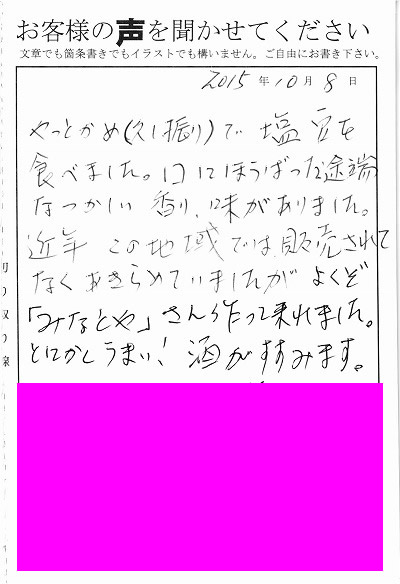 お客様の声を聞かせてください
文章でも箇条書きでもイラストでも構いません。ご自由にお書き下さい。
2015年10月8日
やっとかめ(久し振り)で 塩豆を
食べました。口にほうばった途端
なつかしい 香り、味がありました。
近年 この地域では販売されて
なく あきらめていましたが よくぞ
「みなとや」さん作って来れました。
とにかくうまい! 酒がすすみます。
切り取り線